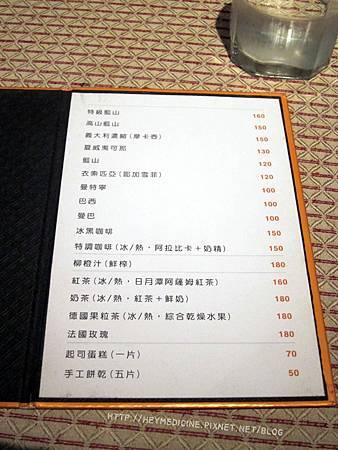 特級藍山 160
高山藍山 150
義大利濃縮(摩卡壺) 150
夏威夷可那 130
藍山 120
衣索匹亞(耶加雪菲) 120
曼特寧 100
巴西 100
曼巴 100
冰黑咖啡 150
特調咖啡(冰/熱,阿拉比卡+奶精) 150
柳橙汁(鮮榨) 180
紅茶(冰/熱,日月潭阿薩姆紅茶) 160
奶茶(冰/熱,紅茶+鮮奶) 180
德國果粒茶(冰/熱,綜合乾燥水果) 180
法國玫瑰 180
起司蛋糕(一片) 70
手工餅乾(五片) 50
HTTP://HEYMEDICINE.PIXNET.NET/BLOG